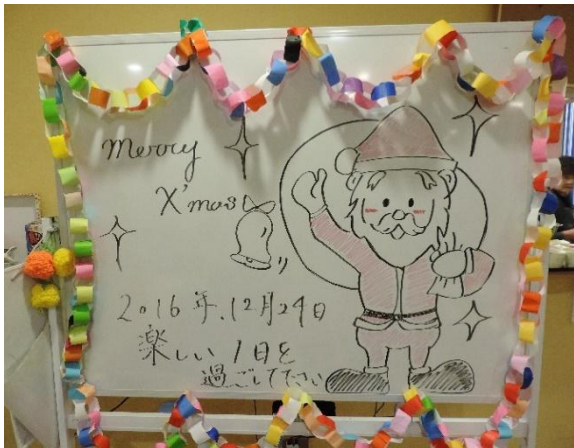 Merry
X'mas
2016年.12月24日
楽しい1日を
過ごして下さい